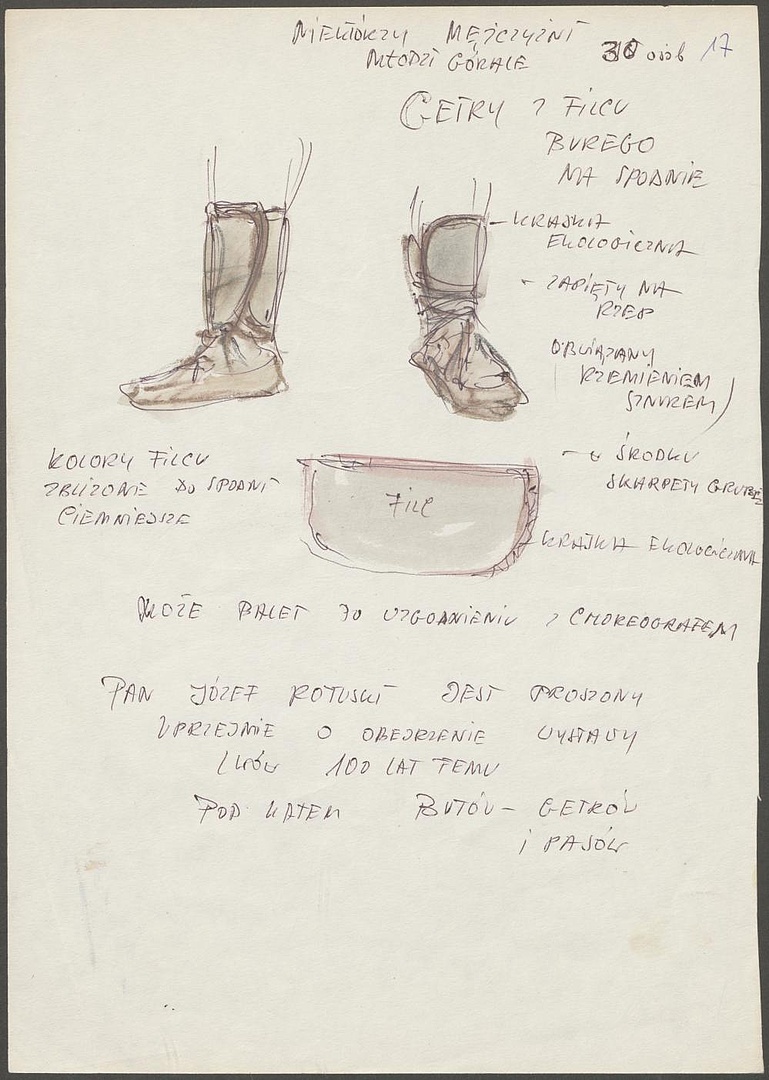 NIEKTÓRZY MĘŻCZYŹNI
MŁODZI GÓRALE
30 osób 17
GETRY Z FILCU
BUREGO
NA SPODNIE
KRAJKA
EKOLOGICZNA
- ZAPIĘTY NA
RZEP
OBWIĄZANY
RZEMIENIEM
SZNUREM)
- W ŚRODKU
SKARPETY GRUBE
KOLORY FILCU
ZBLIŻONE DO SPODNI
CIEMNIEJSZE
FILC
KRAJKA EKOLOGICZNA
MOŻE BALET DO UZGODNIENIU Z CHOREOGRAFEM
PAN JÓZEF ROTUSKI JEST PROSZONY
UPRZEJMIE O OBEJRZENIE WYSTAWY
LWÓW 100 LAT TEMU
POD KĄTEM BUTÓW - GETRÓW
I PASÓW